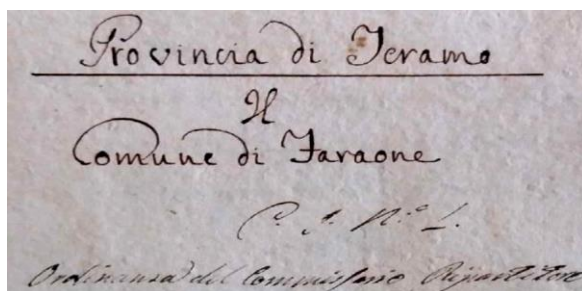 Provincia di Teramo
Il
Comune di Faraone
C. N.º 1.
Ordinanza del Commissario Ripartitore